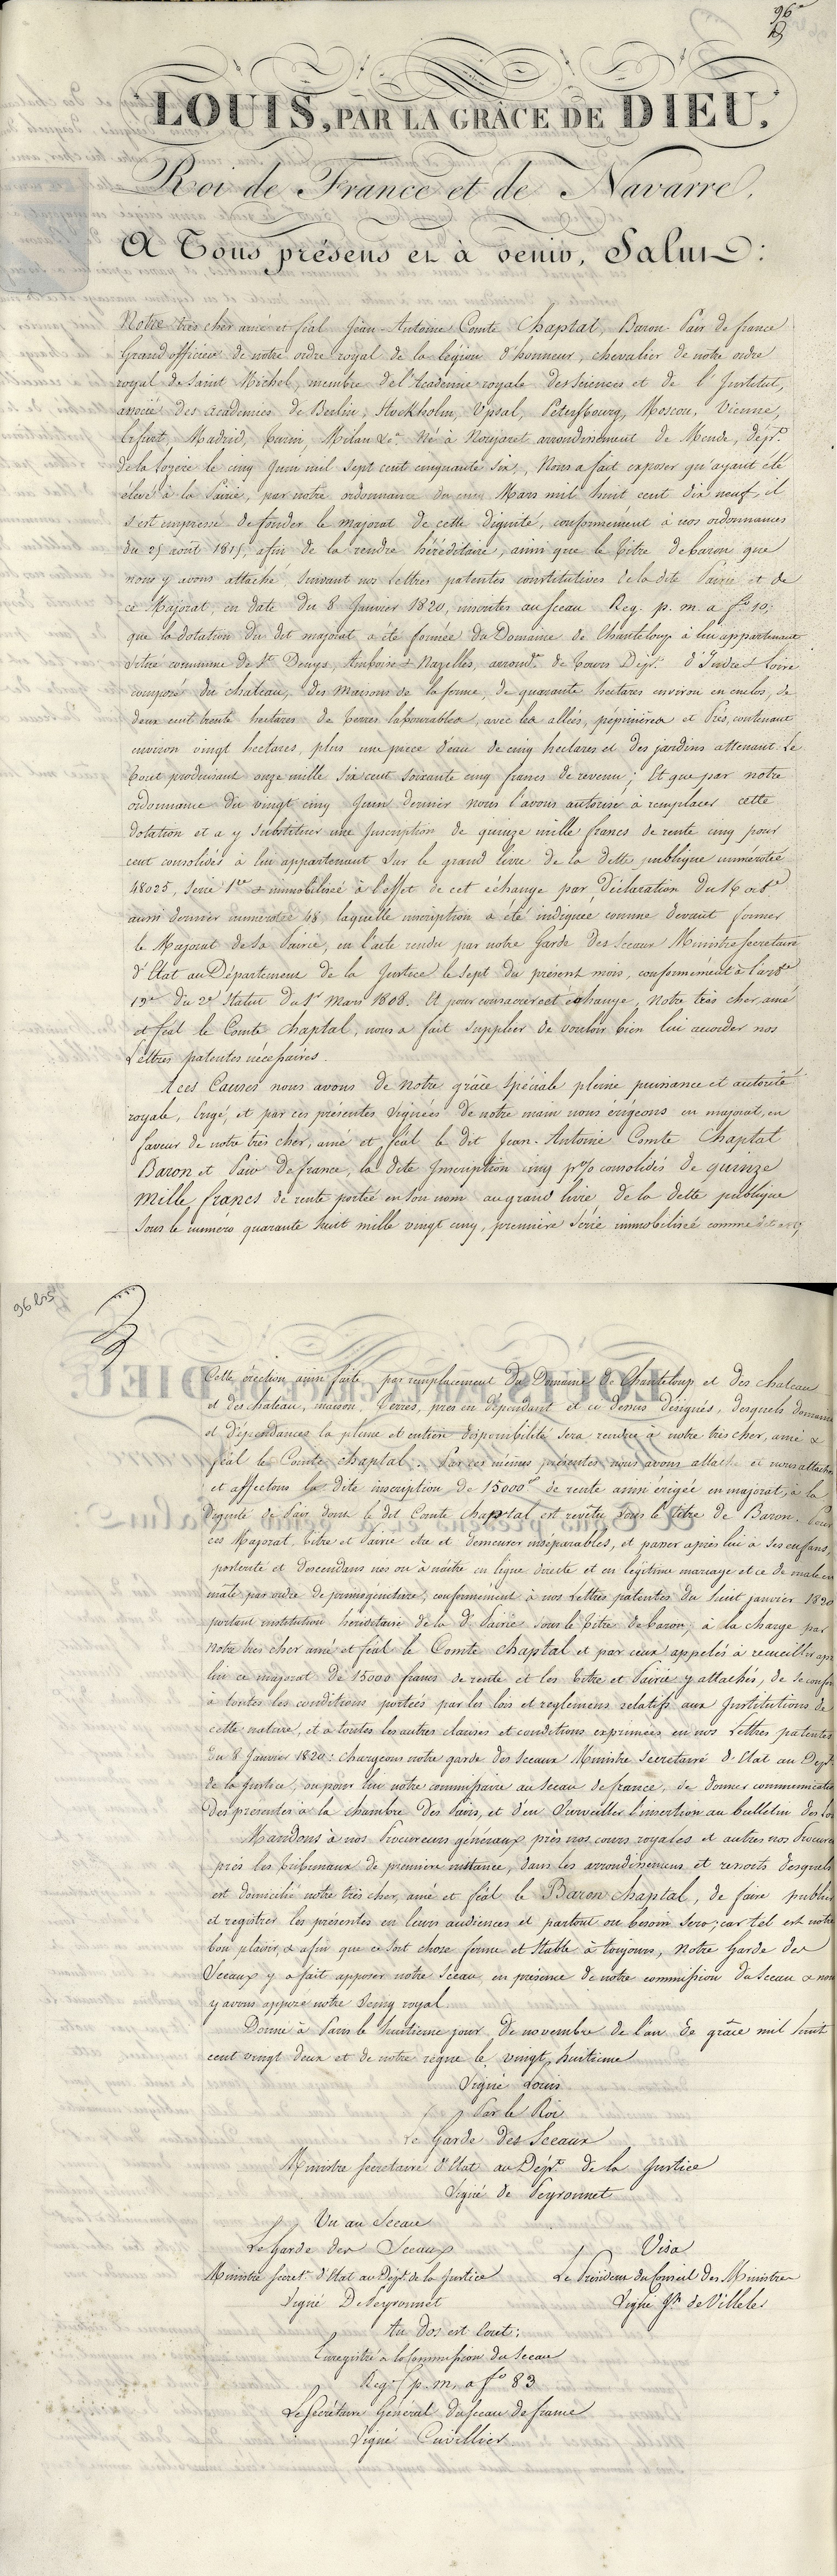 96
LOUIS, PAR LA GRÂCE DE DIEU,
Roi de France et de Navarre,
A Tous présens et à venir, Salut :
Notre très cher amé et féal Jean-Antoine Comte Chaptal, Baron-Pair de france
Grand officier de notre ordre royal de la légion d'honneur, chevalier de notre ordre
royal de Saint Michel, membre de l'Academie royale des Sciences et de l'Institut,
associé des académies de Berlin, Stockholm, Upsal, Petersbourg, Moscou, Vienne,
Erfurt, Madrid, Turin, Milan &a. Né à Nojaret arrondissement de Mende, dépt.
de la Lozère le cinq Juin mil sept cent cinquante six, Nous a fait exposer qu'ayant été
élevé à la Pairie, par notre ordonnance du cinq Mars mil huit cent dix neuf, il
s'est empressé de fonder le majorat de cette dignité, conformément à nos ordonnances
du 25 août 1815, afin de la rendre héréditaire, ainsi que le titre de baron que
nous y avons attaché, suivant nos lettres patentes constitutives de la dite Pairie et de
ce Majorat, en date du 8 Janvier 1820, inscrites au sceau Reg. p. m. a fo 10,
que la dotation du dit majorat a été formée du Domaine de Chanteloup à lui appartenant
situé commune de St. Denys, Amboise & Nazelles, arrondt. de Tours Dépt. d'Indre & Loire
composé du chateau, des Maisons de la ferme, de quarante hectares environ en enclos, de
deux cent trente hectares de terres labourables, avec les allées, pépinières et Prés, contenant
environ vingt hectares, plus une piece d'eau de cinq hectares et des jardins attenant Le
tout produisant onze mille six cent soixante cinq francs de revenu ; Et que par notre
ordonnance du vingt cinq Juin dernier nous l'avons autorisé à remplacer cette
dotation et a y substituer une Inscription de quinze mille francs de rente cinq pour
cent consolidés à lui appartenant sur le grand livre de la dette publique numérotée
48025, Serie 1re & immobilisée à l'effet de cet échange par Déclaration du 16 octbe
aussi dernier numérotée 48, laquelle inscription a été indiquée comme devant former
le Majorat de sa Pairie, en l'acte rendu par notre Garde des Sceaux Ministre Secretaire
d'Etat au Département de la Justice le sept du présent mois, conformément à l'artcle
13e du 2e Statut du 1er Mars 1808. Et pour consacrer cet échange, Notre très cher, amé
et féal le Comte Chaptal, nous a fait supplier de vouloir bien lui accorder nos
Lettres patentes nécessaires.
A ces Causes nous avons de notre grâce Spéciale pleine puissance et autorité
royale, Erigé, et par ces présentes signées de notre main nous érigeons en majorat, en
faveur de notre très cher, amé et féal le dit Jean-Antoine Comte Chaptal
Baron et Pair de france, la dite Inscription cinq p% consolidés de quinze
mille francs de rente portée en son nom au grand livre de la dette publique
sous le numéro quarante huit mille vingt cinq, première Série immobilisée comme
96 bis
Cette érection ainsi faite par remplacement du Domaine de Chanteloup et des chateau
et des chateau, maison, Terres, prés en dépendant et ci dessus désignés, desquels domaine
et dépendances la pleine et entière disponibilité sera rendue à notre très cher, amé &
féal le Comte Chaptal. Par ces mêmes présentes nous avons attaché et nous attachons
et affectons la dite inscription de 15000 f de rente ainsi érigée en majorat, à la
Dignité de Pair dont le dit Comte Chaptal est revêtu sous le titre de Baron. Pour
ces Majorat, titre et Pairie être et demeurer inséparables, et passer après lui à ses enfans,
postérité et descendans nés ou à naitre en ligne directe et en légitime mariage et ce de mâle en
mâle par ordre de primogéniture, conformément à nos Lettres patentes du huit janvier 1820
portant institution héréditaire de la de. Pairie sous le titre de baron, à la charge par
Notre très cher amé et féal le Comte Chaptal et par ceux appelés à recueillir apr
lui ce majorat de 15000 francs de rente et les titre et Pairie y attachés, de se confor
à toutes les conditions portées par les lois et reglemens relatifs aux Institutions de
cette nature, et à toutes les autres clauses et conditions exprimées en nos Lettres patentes
du 8 Janvier 1820 : chargeons notre garde des sceaux Ministre Secretaire d'Etat au Dept
de la Justice, ou pour lui notre commissaire au Sceau de france, de donner communication
des présentes à la chambre des Pairs, et d'en surveiller l'insertion au bulletin des Lois
Mandons à nos Procureurs généraux près nos cours royales et autres nos Procure
près les tribunaux de première instance, dans les arrondissemens et ressorts desquels
est domicilié notre très cher, amé et féal le Baron Chaptal, de faire publier
et registrer les présentes en leurs audiences et partout ou besoin sera ; car tel est notre
bon plaisir, & afin que ce soit chose ferme et stable à toujours, Notre Garde des
Sceaux y a fait apposer notre Sceau en présence de notre commission du Sceau & nous
y avons apposé notre Seing royal.
Donné à Paris le huitieme jour de novembre de l'an de grâce mil huit
cent vingt deux et de notre règne le vingt huitieme
Signé Louis
Par le Roi
Le Garde des Sceaux
Ministre Secretaire d'Etat au Dépt. de la Justice
Signé de Peyronnet
Vu au Sceau
Le Garde des Sceaux
Visa
Ministre Secret. d'Etat au Dépt. de la Justice
Le Président du Conseil des Ministres
Signé De Peyronnet
Signé Jh de Villèle
Au Dos est écrit :
Enregistré à la Commission du Sceau
Regt. p. m. a fo 83
Le Secrétaire Général du sceau de france
Signé Cuvillier